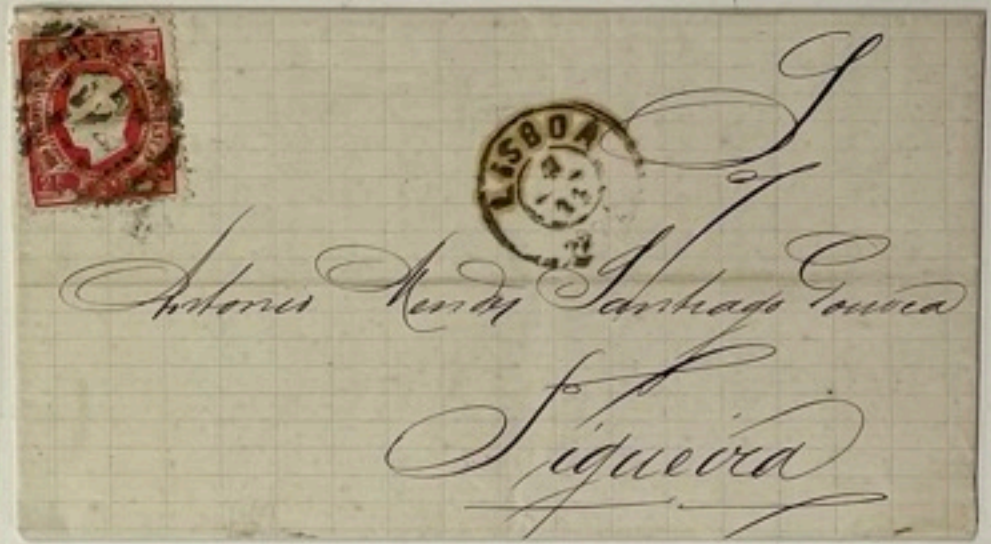 LISBOA
S
Antonio Mendes Santiago Gouvea
Figueira